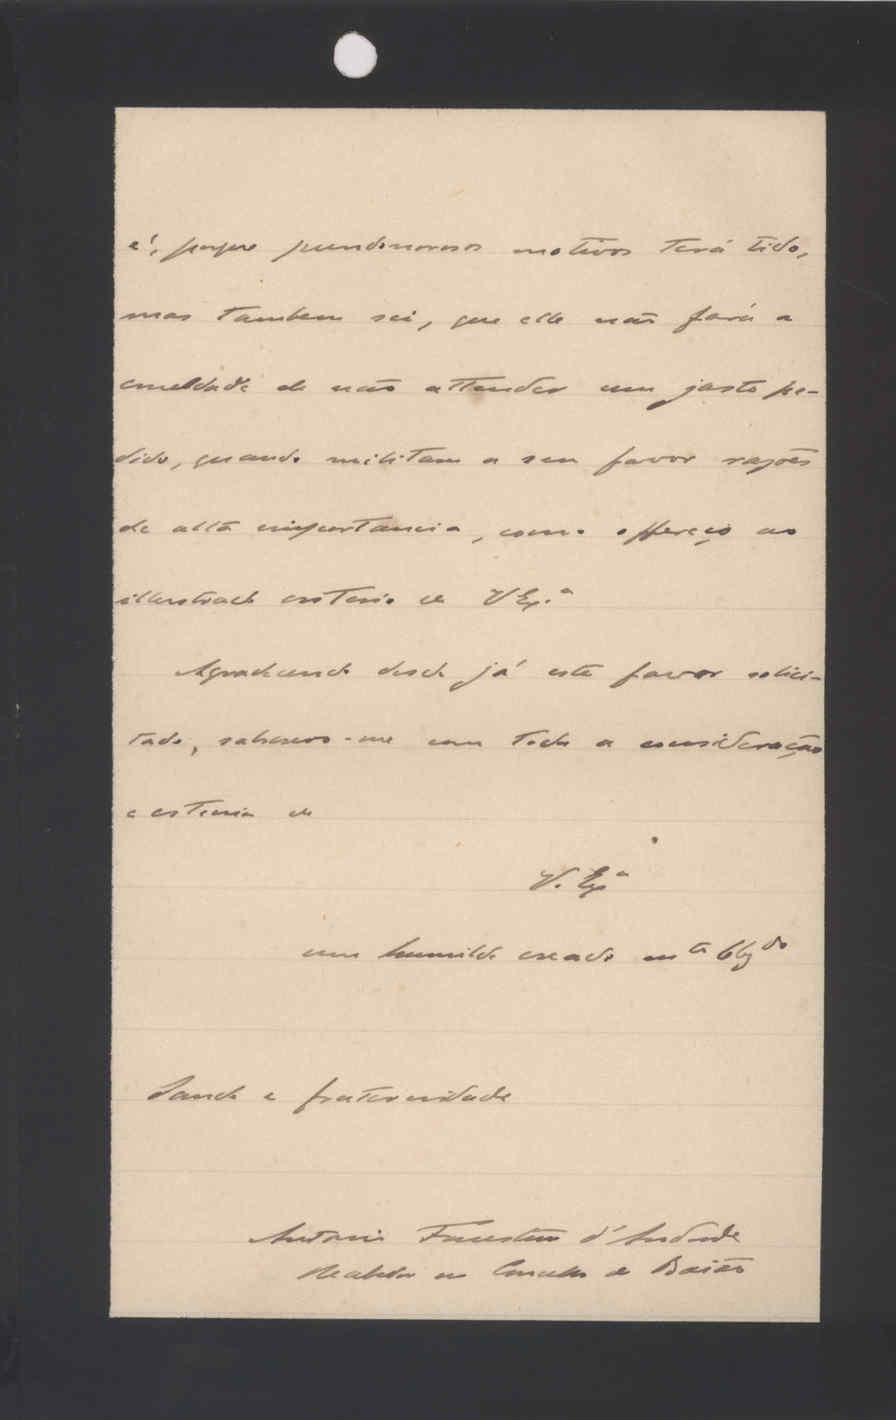 é, porque pundonorosos motivos terá tido,
mas tambem sei, que elle não fará a
crueldade de não attender um justo pe-
dido, quando militam a seu favor razões
de alta importancia, como offereço ao
illustrado criterio de V Ex.ª
Agradecendo desde já este favor solici-
tado, subscrevo-me com toda a consideração
e estima de
V. Exª
um humilde creado mᵗᵒ Obgᵈᵒ
Saude e fraternidade
Antonio Faustino d'Andrade
no Concelho de Baião